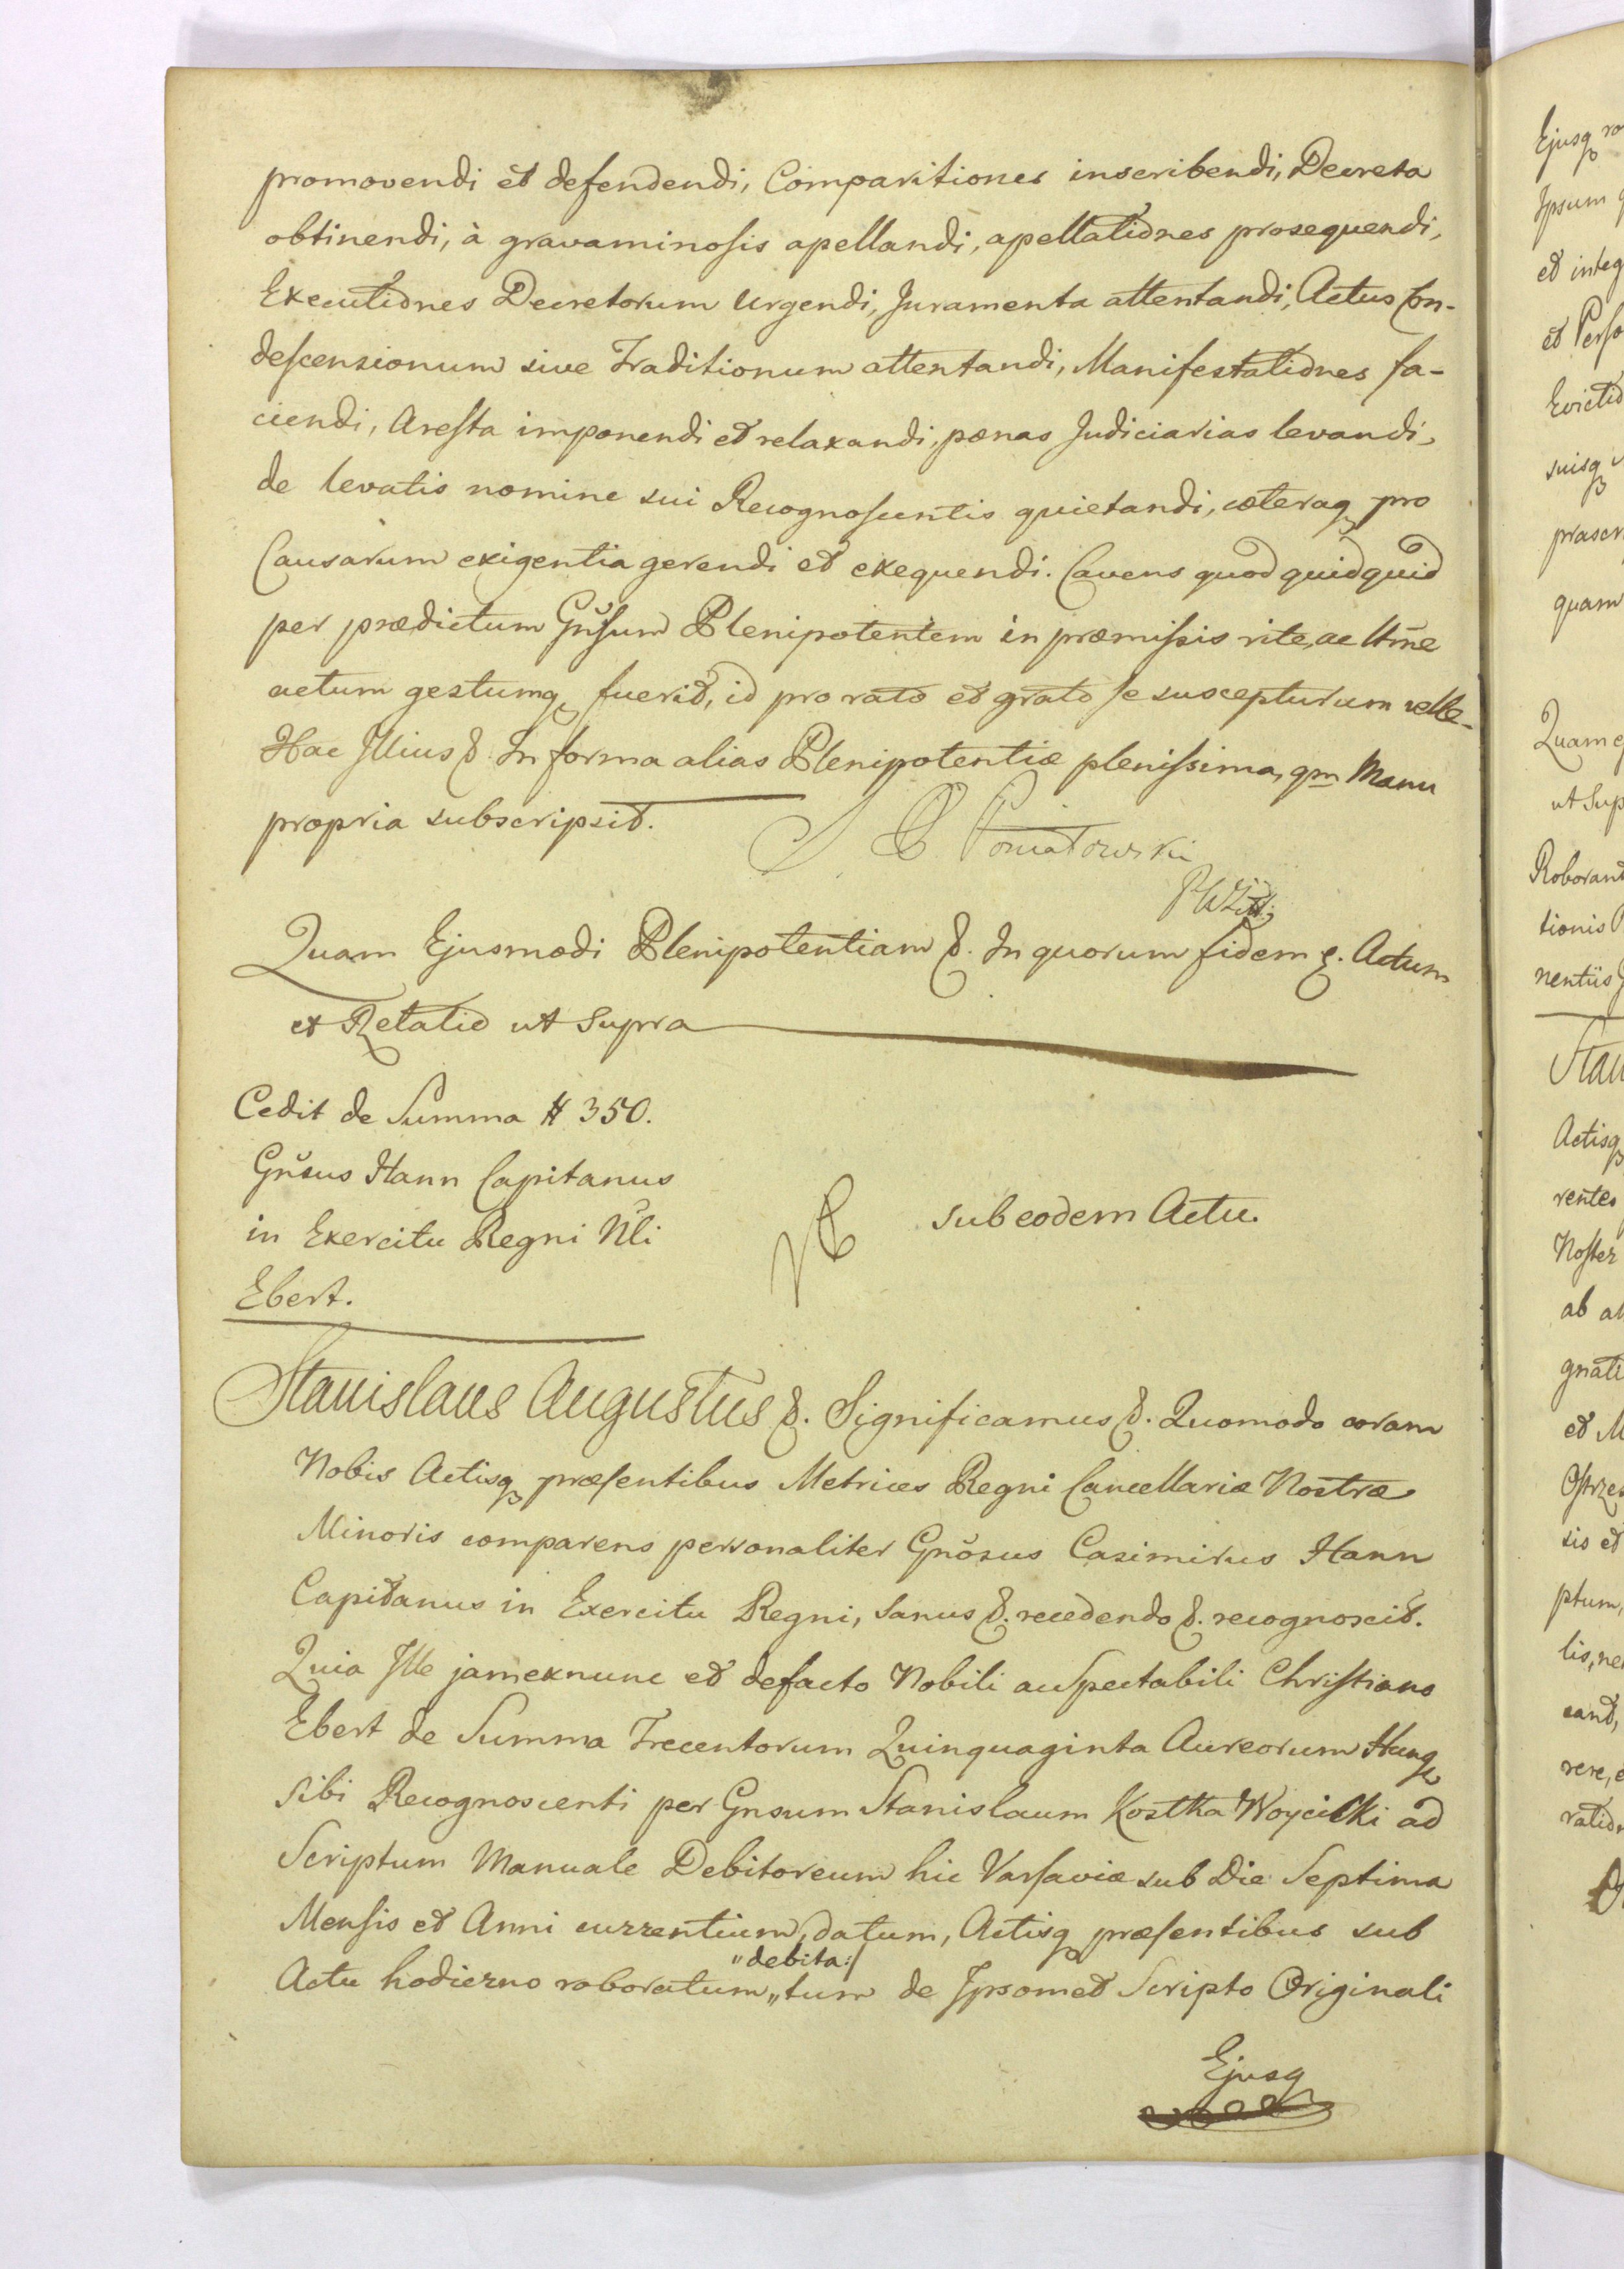 promovendi et defendendi, Comparitiones inscribendi, Decreta
obtinendi, à gravaminosis apellandi, apellationes prosequendi,
Executiones Decretorum urgendi, Juramenta attentandi, Actus Con-
descensionum sive Traditionum attentandi, Manifestationes fa-
ciendi, Aresta imponendi et relaxandi, pænas Judiciarias levandi,
de levatis nomine sui Recognoscentis quietandi, cæteraq pro
Causarum exigentia gerendi et exequendi. Cavens quod quidquid
per prædictum Gnsum Plenipotentem in præmissis rite, ac ltme
actum gestumq fuerit, id pro rato et grato se suscepturum velle.
Hac Illius &. In forma alias Plenipotentiæ plenissima, qm Manu
propria subscripsit. Poniatowski
Quam Ejusmodi Plenipotentiam &. In quorum fidem &. Actum
et Relatio ut Supra
Cedit de Summa # 350.
Gnsus Hann Capitanus
in Exercitu Regni Nli
Ebert.
sub eodem Actu.
Stanislaus Augustus &. Significamus &. Quomodo coram
Nobis Actisq præsentibus Metrices Regni Cancellariæ Nostræ
Minoris comparens personaliter Gnosus Casimirus Hann
Capitanus in Exercitu Regni, sanus &. recedendo &. recognoscit.
Quia Ille jam exnunc et defacto Nobili ac Spectabili Christiano
Ebert de Summa Trecentorum Quinquaginta Aureorum Hung
sibi Recognoscenti per Gnsum Stanislaum Kostka Woycicki ad
Scriptum Manuale Debitoreum hic Varsaviæ sub Die Septima
Mensis et Anni currentium, datum, Actisq præsentibus sub
"debita:/
Actu hodierno roboratum,, tum de Ipsomet Scripto Originali
Ejusq
Ejusq
Ipsum
et integ
et Perso
suisq
quam
ut Sup
Roborand
tionis
nentiis
Stan
Actisq
rentes
Noster
ab al
gnati
et M
sis et
ptum,